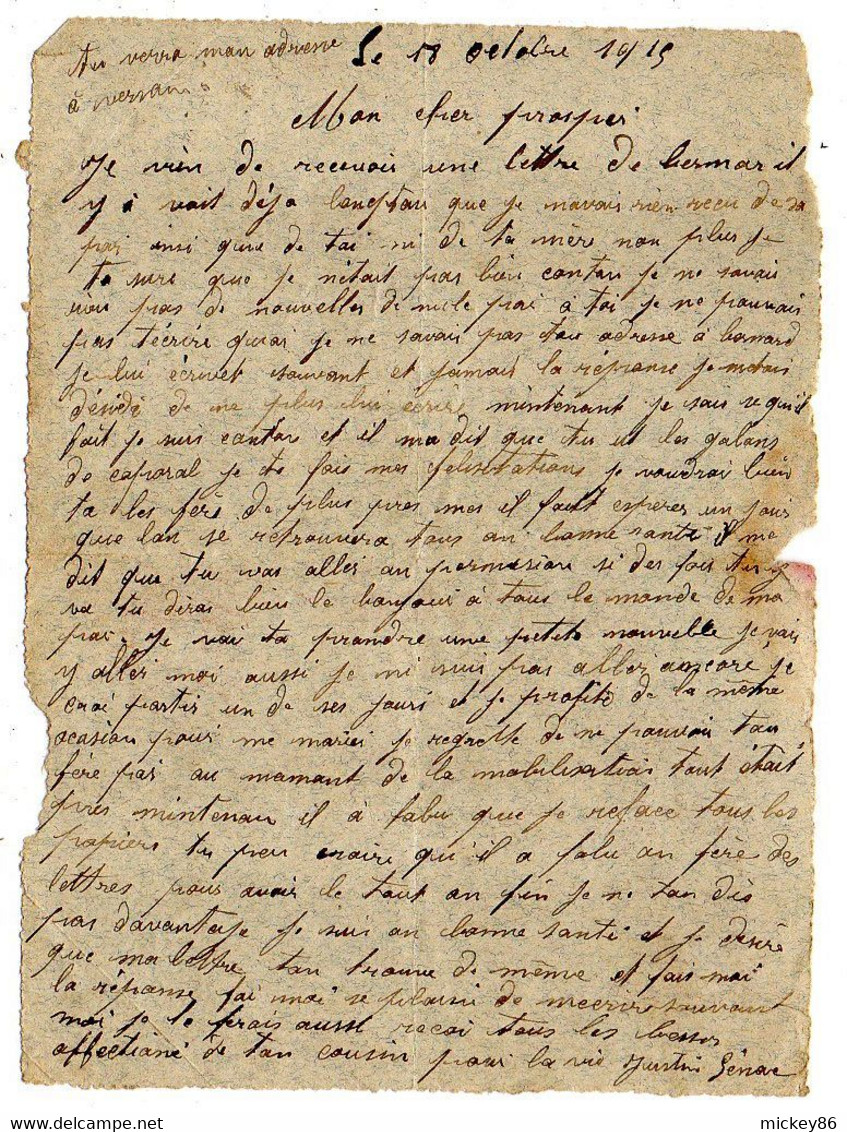 tu verra mon adresse
à versau
Le 18 octobre 1915
Mon cher prosper
Je vien de recevoir une lettre de bernar il
y a vait déja lengtau que je navais rien recu de sa
par insi que de toi ni de ta mère non plus je
ta sure que je nétait pas bien contan je ne savais
rien pas de nouvelles de nule par à toi je ne pouvais
pas técrire quoi je ne savais pas ton adresse à bernard
je lui écrivet souvant et jamais la réponse je métais
désidé de ne plus lui écrire mintenant je sais se quil
fait je suis contan et il ma dit que tu ut les galons
de caporal je te fais mes felisitations je voudrai bien
ta les fére de plus pres mes il faut esperer un jour
que lon se retrouvera tous an bonne santé il me
dit que tu vas aller an permision si des fois tu y
va tu diras bien le bonjour à tous le monde de ma
par. Je vai ta prandre une petite nouvelle je vais
y aller moi aussi je ni suis pas aller ancore je
croi partir un de ses jours et je profite de la même
ocasion pour me marier je regrette de ne pouvoir tau
fére par au mamant de la mobilisation tout était
près mintenau il à falu que je reface tous les
papiers tu peu croire qu'il a falu an fére des
lettres pour avoir le tout an fin je ne tan dis
pas davantaje je suis an bonne santé et je désire
que ma lettre tan trouve de même et fais moi
la réponse fai moi se plaisir de mecrire souvant
moi je le ferais aussi recoi tous les besers
affectioné de ton cousin pour la vie Justin Génac
mickey86